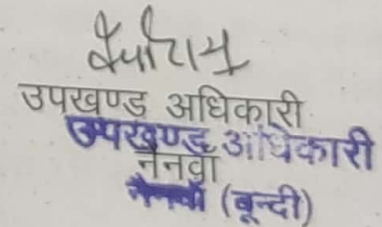 उपखण्ड अधिकारी
उपखण्ड अधिकारी
नैनवॉ
नैनवॉ (बून्दी)